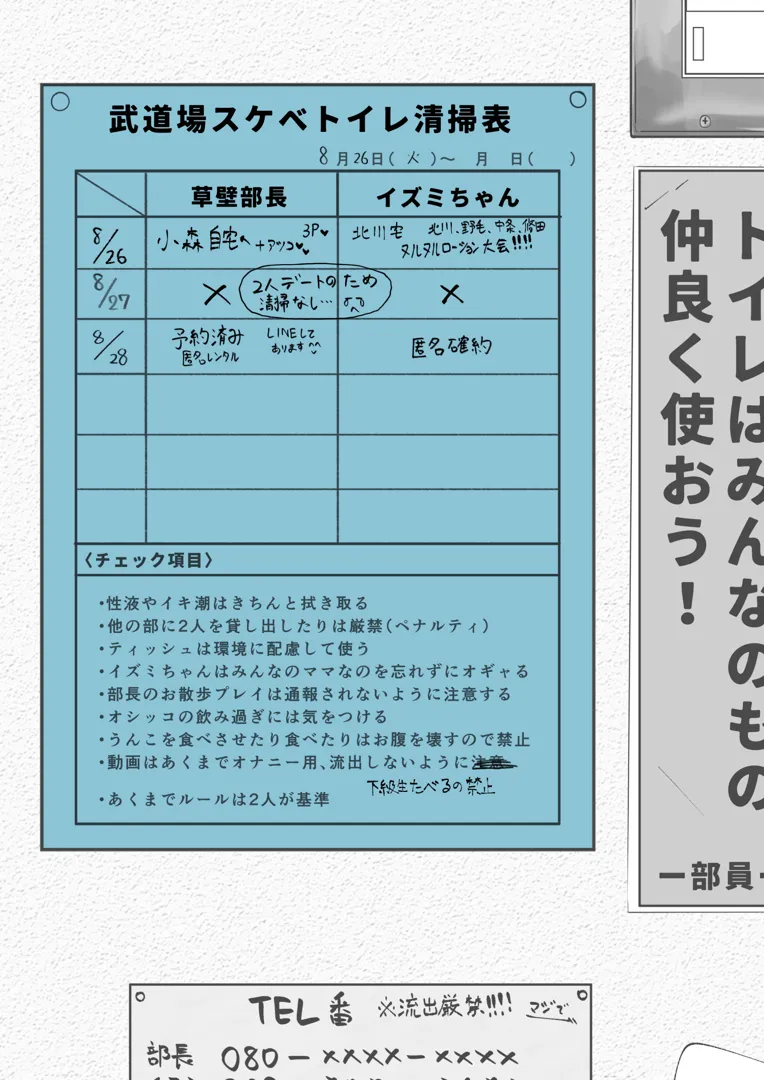 武道場スケベトイレ清掃表
8月26日(火)〜 月 日( )
草壁部長 イズミちゃん
8/26 小森自宅へ +アツコ 3P♥ 北川宅 北川、野毛、中条、修田
ヌルヌルローション大会!!!!
8/27 × 2人デートのため ×
清掃なし…
8/28 予約済み LINEして 匿名確約
匿名レンタル あります
〈チェック項目〉
・性液やイキ潮はきちんと拭き取る
・他の部に2人を貸し出したりは厳禁(ペナルティ)
・ティッシュは環境に配慮して使う
・イズミちゃんはみんなのママなのを忘れずにオギャる
・部長のお散歩プレイは通報されないように注意する
・オシッコの飲み過ぎには気をつける
・うんこを食べさせたり食べたりはお腹を壊すので禁止
・動画はあくまでオナニー用、流出しないように注意
下級生たべるの禁止
・あくまでルールは2人が基準
トイレはみんなのもの
仲良く使おう!
ー部員
TEL番 ※流出厳禁!!!! マジで
部長 080-××××-××××